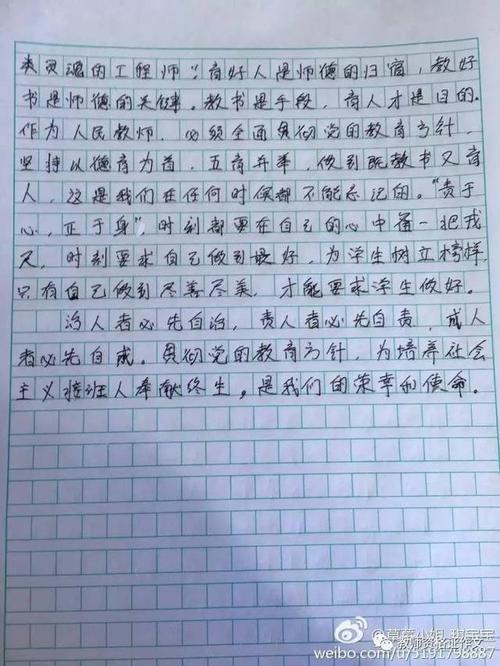 类灵魂的工程师"。育好人是师德的归宿，教好
书是师德的关键。教书是手段，育人才是目的。
作为人民教师，必须全面贯彻党的教育方针，
坚持以德育为首，五育并举，做到既教书又育
人，这是我们在任何时候都不能忘记的。"责于
心，正于身"，时刻都要在自己的心中有一把戒
尺，时刻要求自己做到最好，为学生树立榜样，
只有自己做到尽善尽美，才能要求学生做好。
治人者必先自治，责人者必先自责，成人
者必先自成。贯彻党的教育方针，为培养社会
主义接班人奉献终生，是我们的荣幸和使命。
weibo.com/u/3191798887